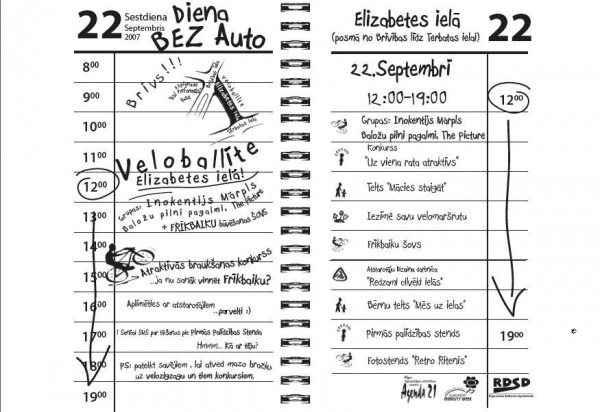 22 Sestdiena
Septembris
2007
Diena
BEZ Auto
8⁰⁰
9⁰⁰
10⁰⁰
11⁰⁰
12⁰⁰
13⁰⁰
14⁰⁰
15⁰⁰
16⁰⁰
17⁰⁰
18⁰⁰
19⁰⁰
Brīvs!!!
veloballīte
Elizabetes iela
Tērbatas iela
Veloballīte
Elizabetes ielā!
Grupas: Inokentijs Mārpls
Baložu pilni pagalmi, The Picture
+ FRĪKBAIKU būvēšanas ŠOVS
Atraktīvās braukšanas konkurss
...ja nu sanāk vinnēt Frīkbaiku?
Aplīmēties ar atstarotājiem
...porvelti :)
Hmmm... Kā ar tēju?
PS: pateikt savējiem, lai atved mazo brašku
uz velozigzagu un tiem konkursiem.
Elizabetes ielā
(posmā no Brīvības līdz Tērbatas ielai)
22
22.Septembrī
12:00-19:00
12⁰⁰
Grupas: Inokentijs Mārpls
Baložu pilni pagalmi, The Picture
Konkurss
"Uz viena rata atraktīvs"
Telts "Mācies staigāt"
Iezīmē savu velomaršrutu
Frīkbaiku šovs
Atstarotāju dizaina darbnīca
"Redzami cilvēki ielās"
Bērnu telts "Mēs uz ielas"
Pirmās palīdzības stends
19⁰⁰
Fotostends "Retro Ritenis"
Agenda 21
MOBILITY WEEK
RDSD